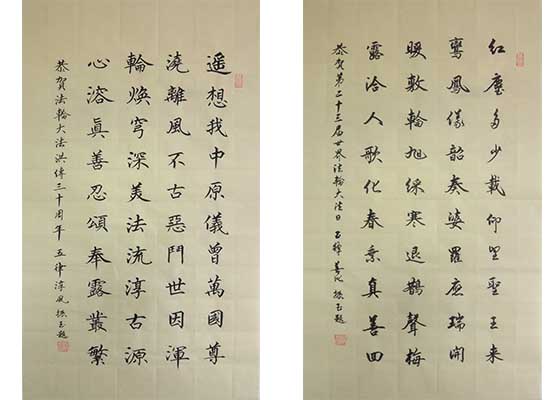 遥想我中原儀曾萬國尊
澆離風不古惡鬥世因渾
輪煥穹深美法流淳古源
心溶眞善忍頌奉露叢繁
恭賀法輪大法洪傳三十周年 五律淳風 振玉題
红塵多少載仰望聖王来
鸞鳳儀韶奏婆羅應瑞開
暖敷輪旭綵寒退鵲聲梅
露洽人歌化春熏真善四
恭賀第二十三届世界法輪大法日 振玉題